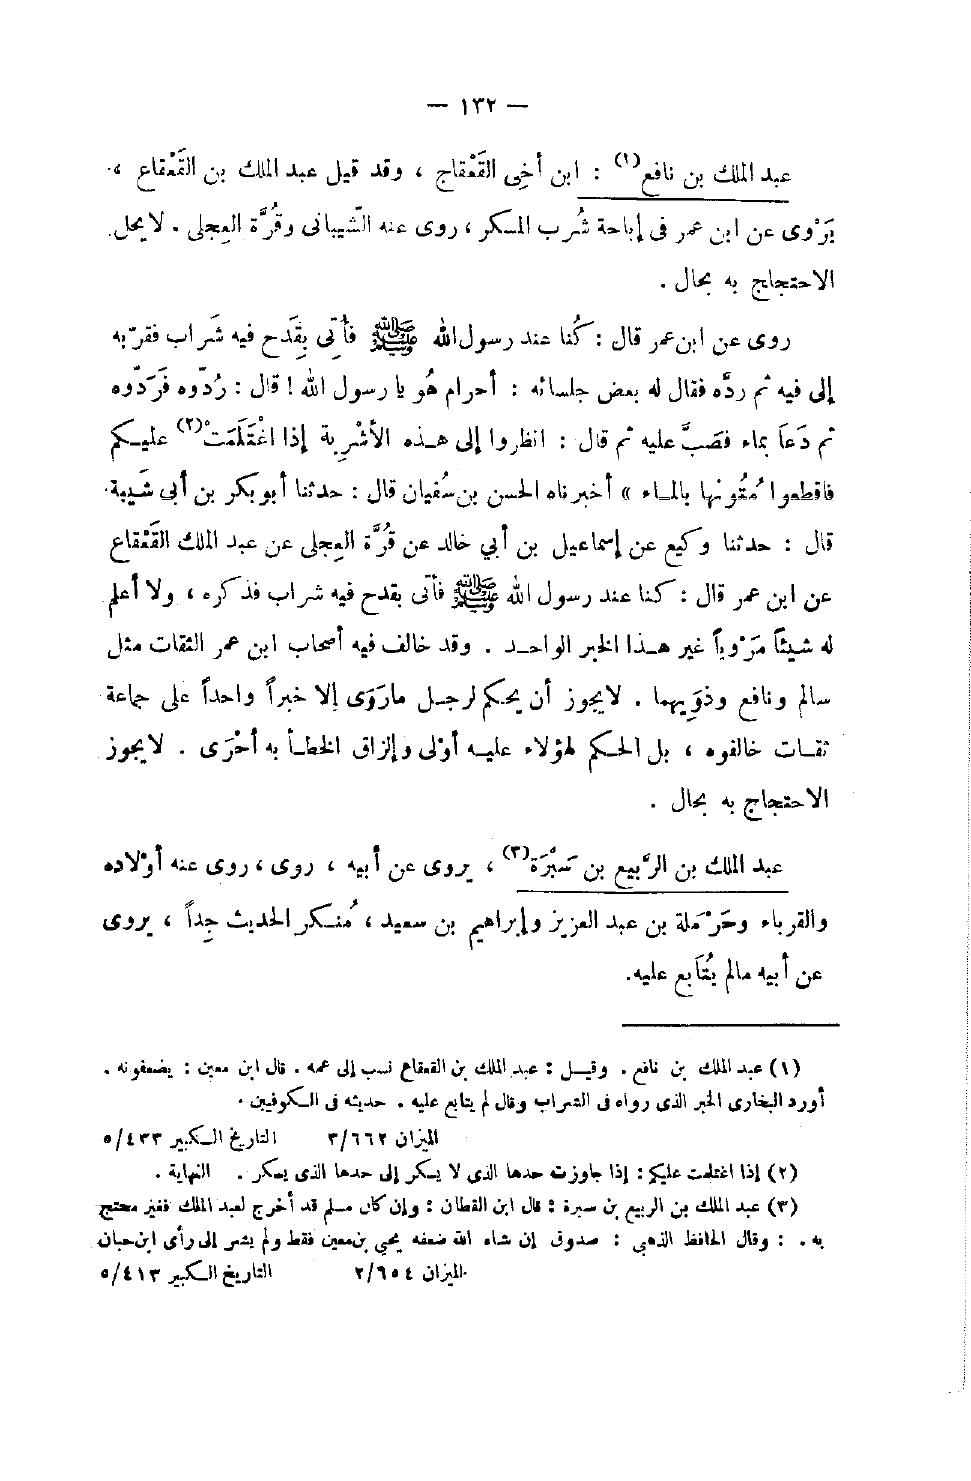 — ١٣٢ —
عبد الملك بن نافع(١) : ابن أخِى القَعْقاج ، وقد قيل عبد الملك بن القَعْقاع ،
يَرْوى عن ابن عمر فى إباحة شُرب المسكر ، روى عنه الشّيبانى وقُرَّة العِجلى . لا يحل
الاحتجاج به بحال .
روى عن ابن عمر قال : كُنا عند رسول الله ﷺ فأتِى بِقَدح فيه شَراب فقرّبه
إلى فيه ثم ردَّه فقال له بعض جلسائه : أحرام هُو يا رسول الله ! قال : رُدّوه فَرَدّوه
ثم دَعَا بماء فصَبَّ عليه ثم قال : انظروا إلى هـذه الأشْرِبة إذا اغْتَلَمَتْ(٢) عليـكم
فاقطعوا مُتُونها بالمـاء » أخبرناه الحسن بن سُفيان قال : حدثنا أبو بكر بن أبى شَيبة
قال : حدثنا وكيع عن إسماعيل بن أبي خالد عن قُرَّة العِجلى عن عبد الملك القَعْقاع
عن ابن عمر قال : كنا عند رسول الله ﷺ فأتى بقدح فيه شراب فذكره ، ولا أعلم
له شيئاً مَرْوياً غير هـذا الخبر الواحـد . وقد خالف فيه أصحاب ابن عمر الثقات مثل
سالم ونافع وذوِيهما . لا يجوز أن يحكم لرجـل ماروَى إلا خبراً واحداً على جماعة
ثقـات خالفوه ، بل الحـكم لهؤلاء عليـه أوْلى وإلزاق الخطـأ به أحْرَى . لا يجوز
الاحتجاج به بحال .
عبد الملك بن الرَّبيع بن سَبْرَة(٣) ، يروى عن أبيه ، روى ، روى عنه أوْلاده
والقرباء وحَرْملة بن عبد العزيز وإبراهيم بن سعيد ، مُنـكر الحديث جِداً ، يروى
عن أبيه مالم يُتَابع عليه.
(١) عبد الملك بن نافع . وقيـل : عبد الملك بن القعقاع نسب إلى عمه . قال ابن معين : يضعفونه .
أورد البخارى الخبر الذى رواه فى الشراب وقال لم يتابع عليه . حديثه فى الـكوفيين .
الميزان ٣/٦٦٢ التاريخ الـكبير ٥/٤٣٣
(٢) إذا اغتلمت عليكم : إذا جاوزت حدها الذى لا يسكر إلى حدها الذى يسكر . النهاية .
(٣) عبد الملك بن الربيع بن سبرة : قال ابن القطان : وإن كان مسلم قد أخرج لعبد الملك فغير محتج
به . : وقال الحافظ الذهبي : صدوق إن شاء الله ضعفه يحيى بن معين فقط ولم يشر إلى رأى ابن حبان
الميزان ٢/٦٥٤ التاريخ الـكبير ٥/٤١٣